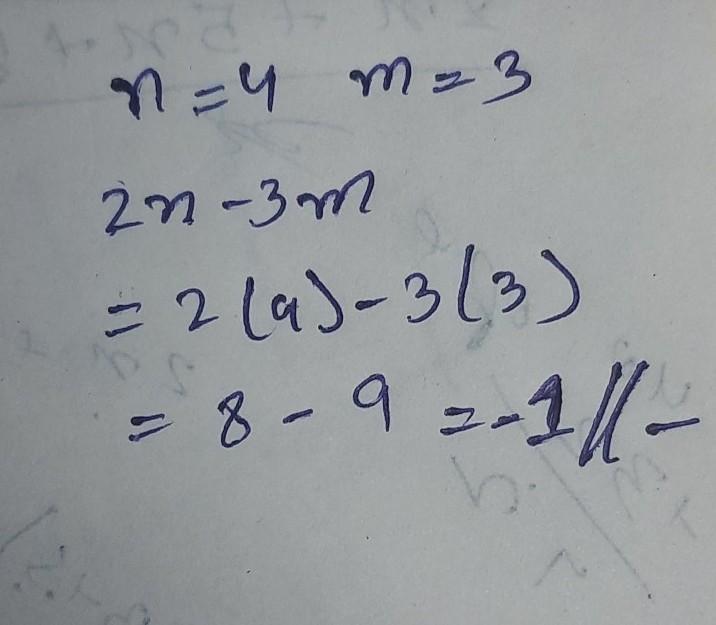 n = 4 m = 3
2n - 3m
= 2 (4) - 3 (3)
= 8 - 9 = -1 // -